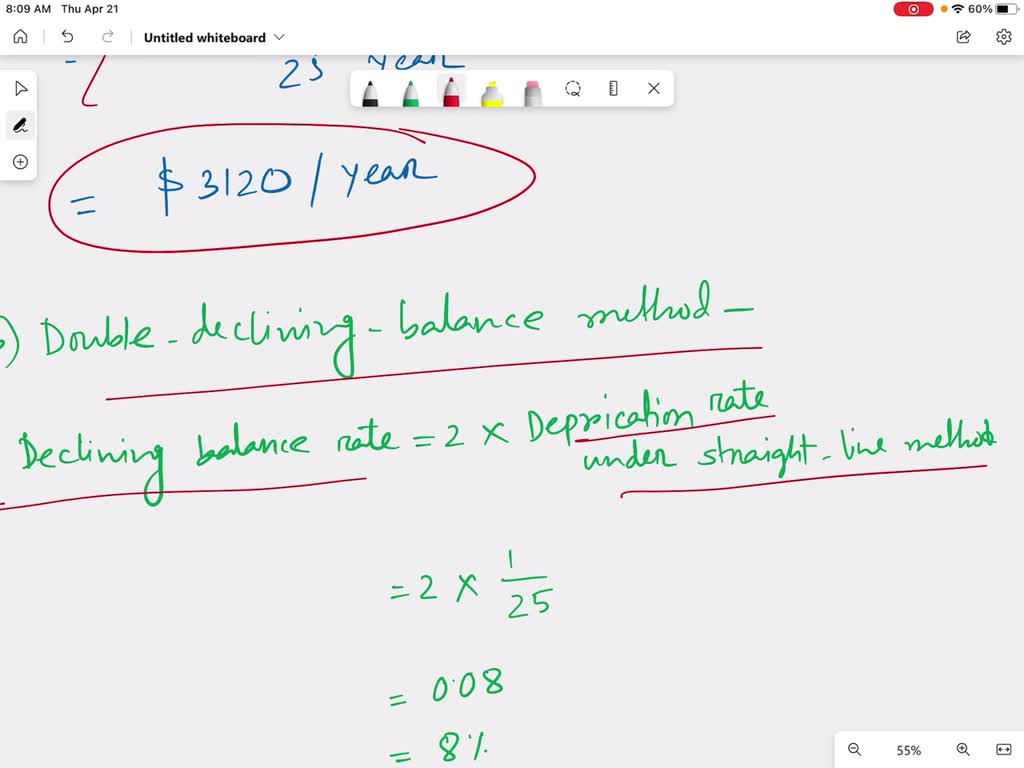 8:09 AM Thu Apr 21
60%
Untitled whiteboard
25 year
= $3120 / year
) Double-declining-balance method-
Declining balance rate = 2 × Deprication rate
under straight-line method
= 2 × 1/25
= 0.08
= 8%
55%